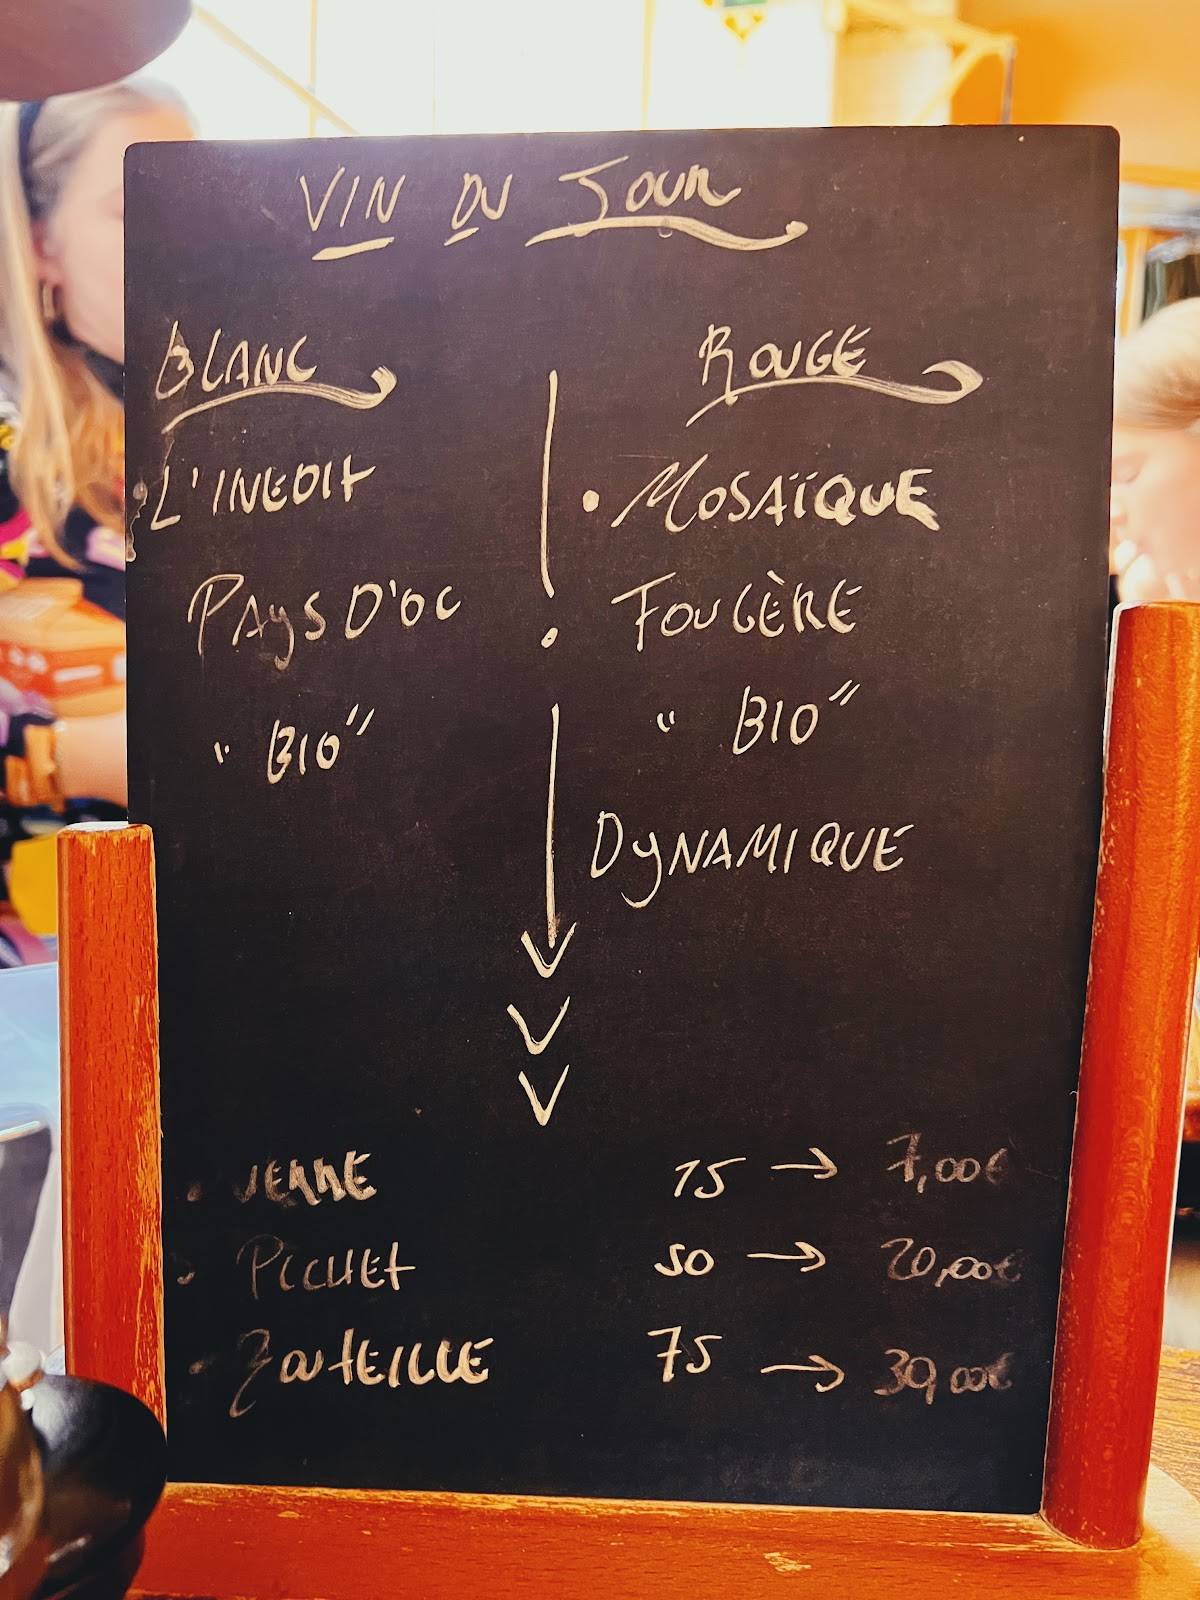 VIN DU JOUR
BLANC
L'INEDIT
PAYS D'OC
"BIO"
ROUGE
• MOSAÏQUE
FOUGÈRE
"BIO"
DYNAMIQUE
• VERRE 15 → 7,00€
• PICHET 50 → 20,00€
• BOUTEILLE 75 → 30,00€